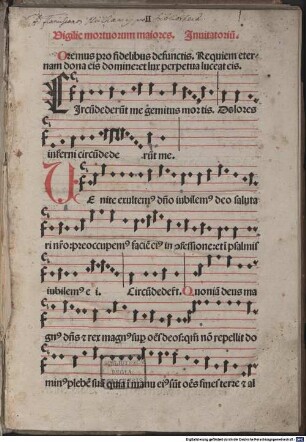 II
Vigilie mortuorum maiores. Inuitatoriū.
Oremus pro fidelibus defunctis. Requiem eter-
nam dona eis domine: et lux perpetua luceat eis.
CIrcūdederūt me gemitus mortis. Dolores
inferni circūdede rūt me.
VEnite exultemꝰ dño iubilemꝰ deo saluta
ri nřo: preoccupemꝰ faciē eiꝰ in ꝯfessione: et ī psalmis
iubilemꝰ e i. Circūdederūt. Quoniā deus ma
gnꝰ dñs et rex magnꝰ suꝑ oēs deos: qm̄ nō repellit do
minꝰ plebē suā quia ī manu eiꝰ sūt oēs fines terre et al
BIBLIOTHECA
REGIA